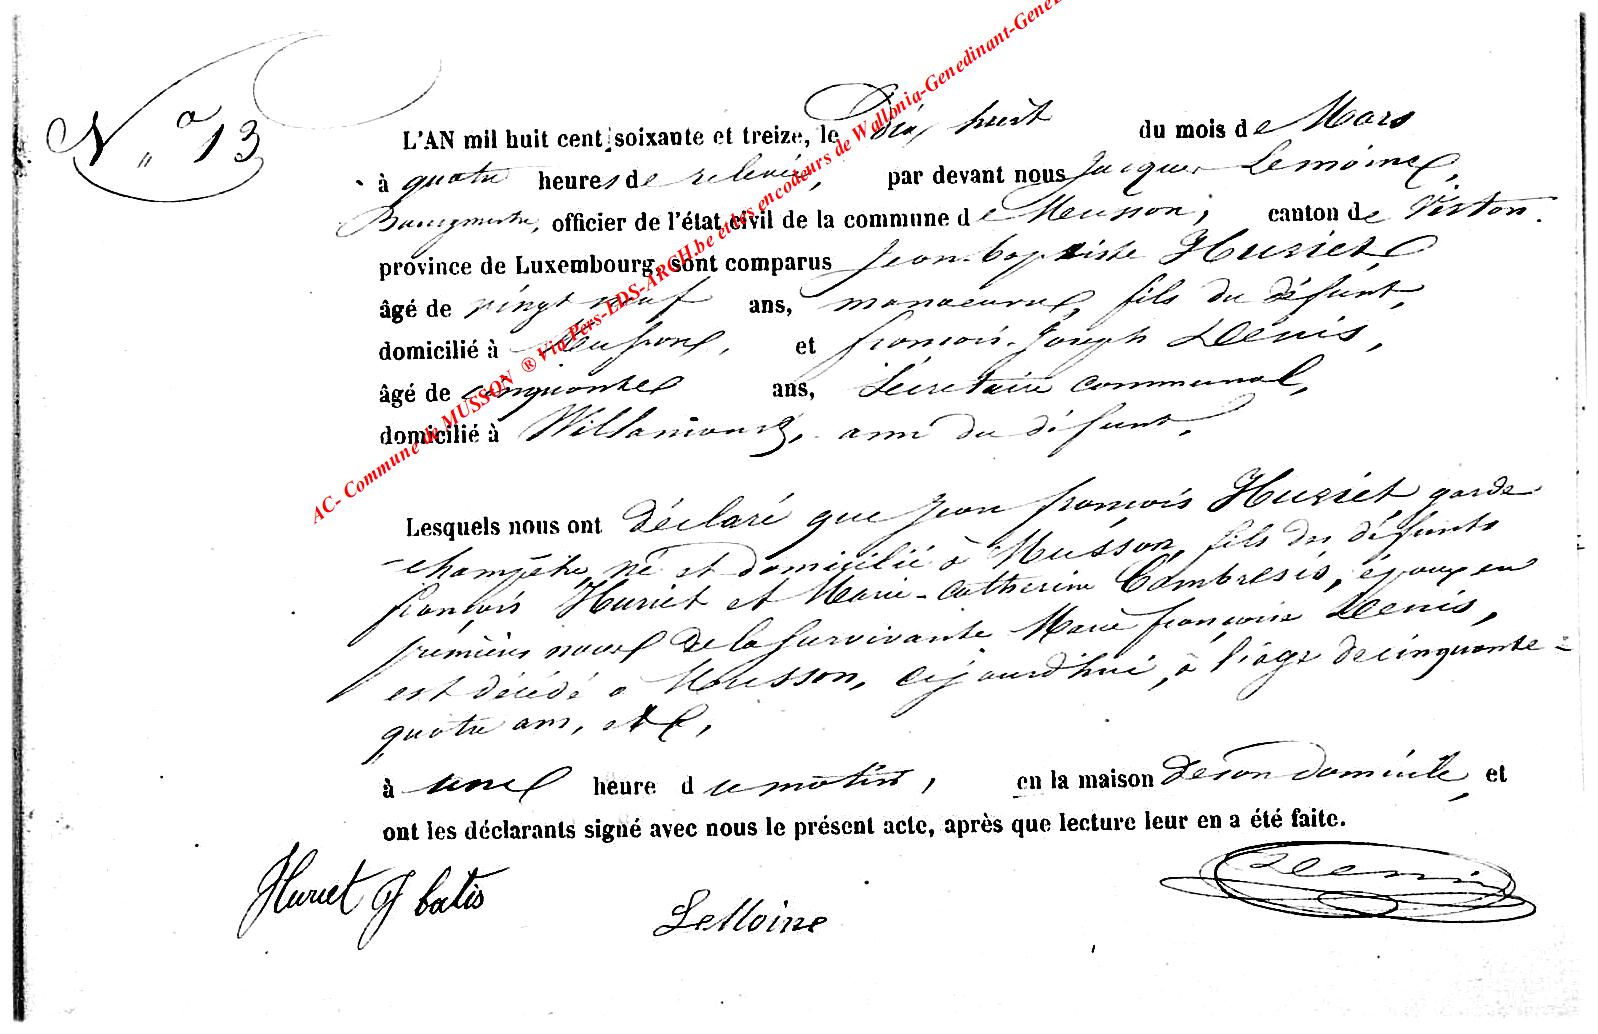 N° 13
L'AN mil huit cent soixante et treize, le Dix huit du mois de Mars
à quatre heures de relevée, par devant nous Jacques Lemoine,
Bourgmestre, officier de l'état civil de la commune de Musson, canton de Virton.
province de Luxembourg, sont comparus Jean-baptiste Huriet
âgé de vingt neuf ans, manoeuvre, fils du défunt,
domicilié à Musson, et françois-Joseph Denis,
âgé de cinquante ans, Secrétaire communal,
domicilié à Willancourt, ami du défunt.
Lesquels nous ont déclaré que Jean françois Huriet garde
champêtre, né et domicilié à Musson, fils des défunts
françois Huriet et Marie-Catherine Cambresis, époux en
premières noces de la survivante Marie françoise Denis,
est décédé à Musson, cejourd'hui, à l'âge de cinquante-
quatre ans,
à une heure du matin, en la maison de son domicile, et
ont les déclarants signé avec nous le présent acte, après que lecture leur en a été faite.
Huriet J batis
LeMoine
Denis
AC- Commune de MUSSON ® Via Pers-LDS-ARCH.be et les encodeurs de Wallonia-Genedinant-Gene